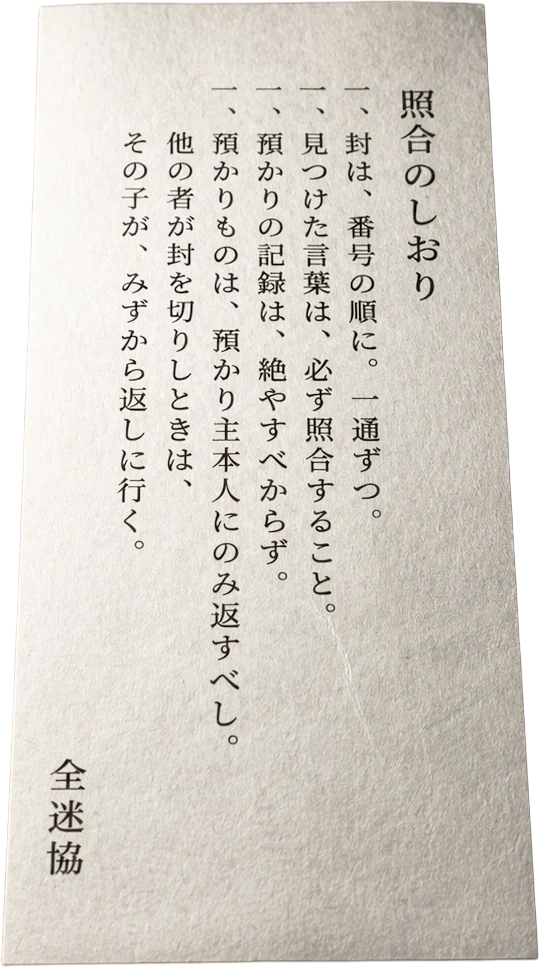 照合のしおり
一、封は、番号の順に。一通ずつ。
一、見つけた言葉は、必ず照合すること。
一、預かりの記録は、絶やすべからず。
一、預かりものは、預かり主本人にのみ返すべし。
他の者が封を切りしときは、
その子が、みずから返しに行く。
全迷協